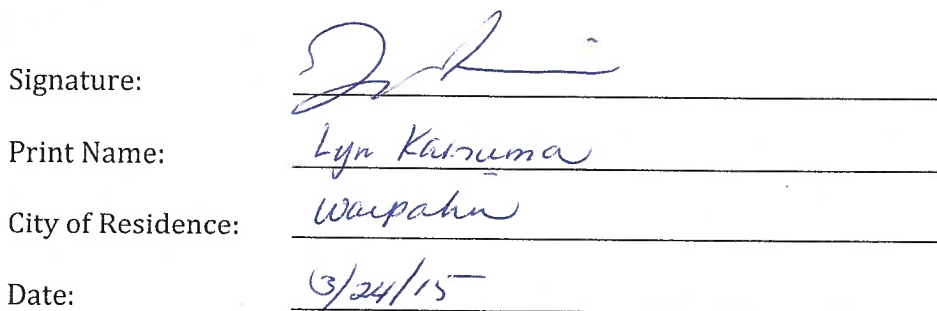 Signature:
Print Name: Lyn
City of Residence: Waipahu
Date: 3/24/15